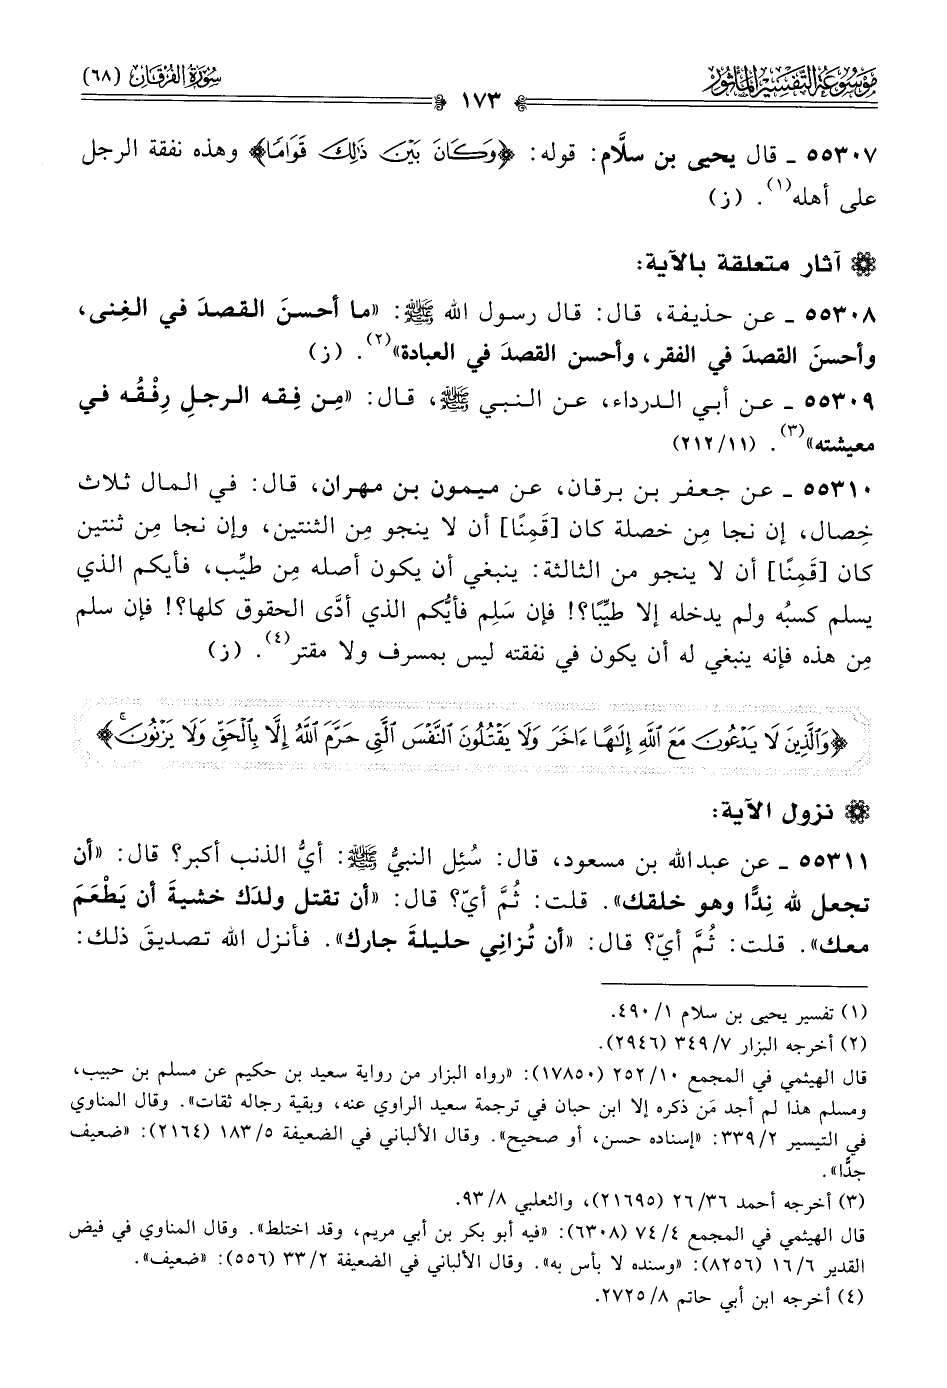 مَوْسُوعَةُ التَّفْسِيْرِ المَأْثُور
١٧٣
سُورَةُ الفُرْقَان (٦٨)
٥٥٣٠٧ ـ قال يحيى بن سلَّام: قوله: ﴿وَكَانَ بَيْنَ ذَلِكَ قَوَامًا﴾ وهذه نفقة الرجل
على أهله(١). (ز)
آثار متعلقة بالآية:
٥٥٣٠٨ ـ عن حذيفة، قال: قال رسول الله ﷺ: «ما أحسنَ القصدَ في الغِنى،
وأحسنَ القصدَ في الفقر، وأحسن القصدَ في العبادة»(٢). (ز)
٥٥٣٠٩ ـ عن أبي الدرداء، عن النبي ﷺ، قال: «مِن فِقه الرجلِ رِفْقُه في
معيشته»(٣). (٢١٢/١١)
٥٥٣١٠ ـ عن جعفر بن برقان، عن ميمون بن مهران، قال: في المال ثلاث
خِصال، إن نجا مِن خصلة كان [قَمِنًا] أن لا ينجو مِن الثنتين، وإن نجا مِن ثنتين
كان [قَمِنًا] أن لا ينجو من الثالثة: ينبغي أن يكون أصله مِن طيِّب، فأيكم الذي
يسلم كسبُه ولم يدخله إلا طيِّبًا؟! فإن سَلِم فأيُّكم الذي أدَّى الحقوق كلها؟! فإن سلم
مِن هذه فإنه ينبغي له أن يكون في نفقته ليس بمسرف ولا مقتر(٤). (ز)
﴿وَالَّذِينَ لَا يَدْعُونَ مَعَ اللَّهِ إِلَهًا ءَاخَرَ وَلَا يَقْتُلُونَ النَّفْسَ الَّتِي حَرَّمَ اللَّهُ إِلَّا بِالْحَقِّ وَلَا يَزْنُونَ ۚ﴾
نزول الآية:
٥٥٣١١ ـ عن عبدالله بن مسعود، قال: سُئِل النبيُّ ﷺ: أيُّ الذنب أكبر؟ قال: «أن
تجعل لله نِدًّا وهو خلقك». قلت: ثُمَّ أيّ؟ قال: «أن تقتل ولدَك خشيةَ أن يَطْعَمَ
معك». قلت: ثُمَّ أيّ؟ قال: «أن تُزاني حليلةَ جارك». فأنزل الله تصديقَ ذلك:
(١) تفسير يحيى بن سلام ١/ ٤٩٠.
(٢) أخرجه البزار ٧/ ٣٤٩ (٢٩٤٦).
قال الهيثمي في المجمع ١٠/ ٢٥٢ (١٧٨٥٠): «رواه البزار من رواية سعيد بن حكيم عن مسلم بن حبيب،
ومسلم هذا لم أجد مَن ذكره إلا ابن حبان في ترجمة سعيد الراوي عنه، وبقية رجاله ثقات». وقال المناوي
في التيسير ٢/ ٣٣٩: «إسناده حسن، أو صحيح». وقال الألباني في الضعيفة ٥/ ١٨٣ (٢١٦٤): «ضعيف
جدًّا».
(٣) أخرجه أحمد ٣٦/ ٢٦ (٢١٦٩٥)، والثعلبي ٨/ ٩٣.
قال الهيثمي في المجمع ٤/ ٧٤ (٦٣٠٨): «فيه أبو بكر بن أبي مريم، وقد اختلط». وقال المناوي في فيض
القدير ٦/ ١٦ (٨٢٥٦): «وسنده لا بأس به». وقال الألباني في الضعيفة ٢/ ٣٣ (٥٥٦): «ضعيف».
(٤) أخرجه ابن أبي حاتم ٨/ ٢٧٢٥.